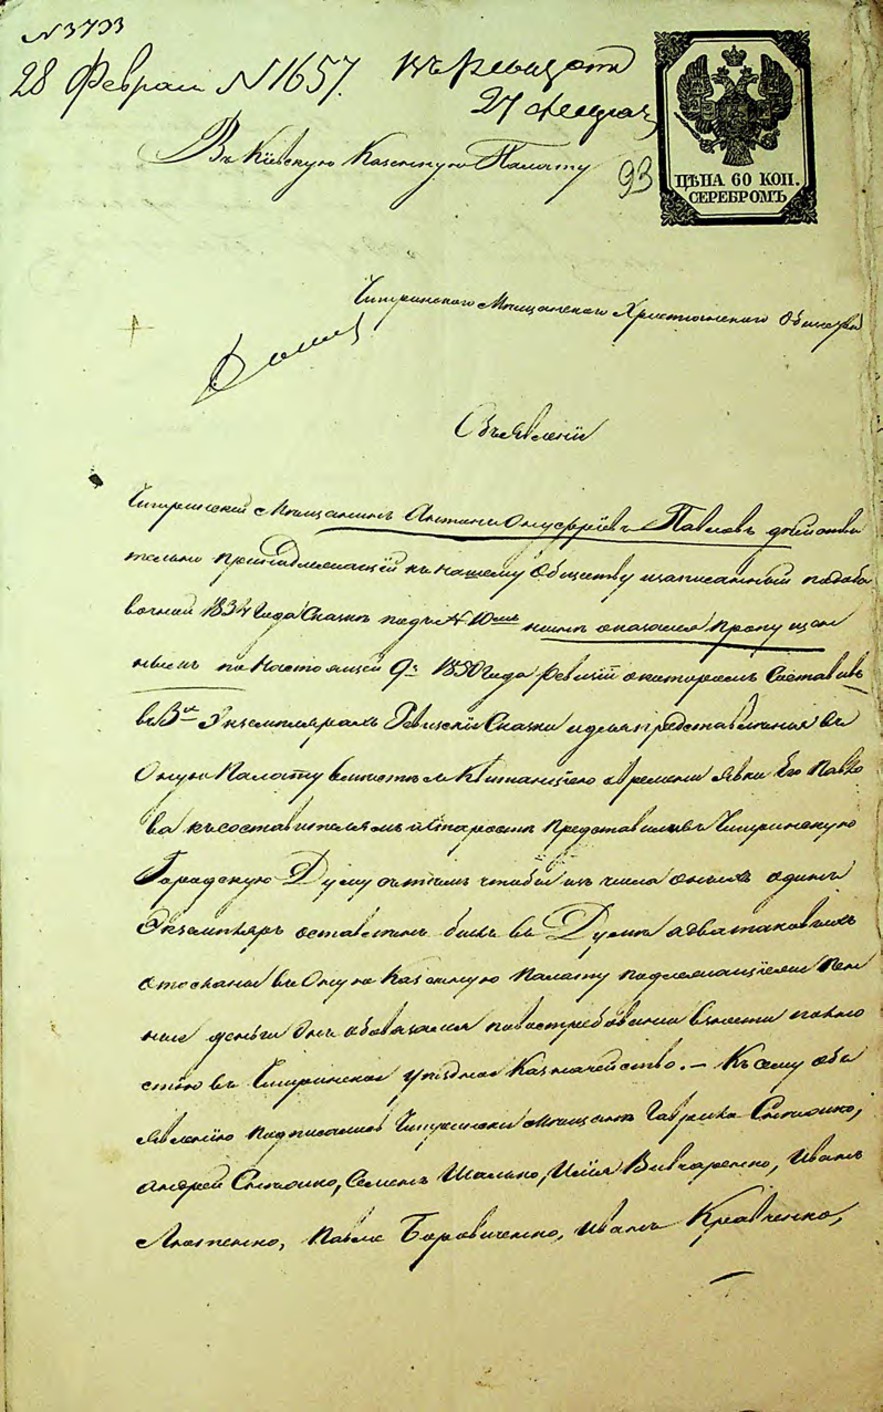 N 3733
28 Февраля N 1657.
27 Февраля
Въ Кіевскую Казенную Палату
93
ЦѢНА 60 КОП.
СЕРЕБРОМЪ
Чигринскаго Мѣщанскаго Христіанскаго Общества
Объявленіе
Чигринскій Мѣщанинъ Антонъ Онуфріевъ Павловъ действи
тельно принадлежащій къ нашему Обществу изаписанный подоба
вочной 1834 Года Сказкѣ подъ N 10мъ нынѣ оказался пропущен
нымъ по Настоящей 9й 1850 Года Ревизіи окоторомъ Составивъ
въ 3хъ Экземплярахъ Ревизскіе Сказки идляпредставленія въ
Оную Палату вместѣ съ Квитанціею овремени явки Его Павло
ва късоставителямъ иСтаростѣ представилъ въ Чигринскую
Городскую Думу сътѣмъ чтобы изъ числа оныхъ одинъ
Экземпляръ оставленъ былъ въ Думѣ адватаковыхъ
отосланы въ Оную Казенную Палату подлежащіеже Пен
ные деньги Онъ обовязался повостребованію Внести полно
стію въ Чигринское уѣздное Казначейство. – Къ сему объ
явленію подписались Чигринскіе мѣщане Гаврило
Андрей Семенъ Шалько, Илія Вивчаренко, Иванъ
Павло Боровиченко, Иванъ Кравченко,